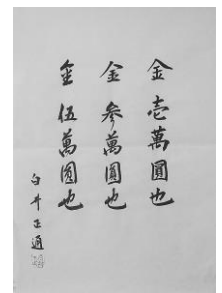 金壱萬圓也
金参萬圓也
金伍萬圓也
白井正通